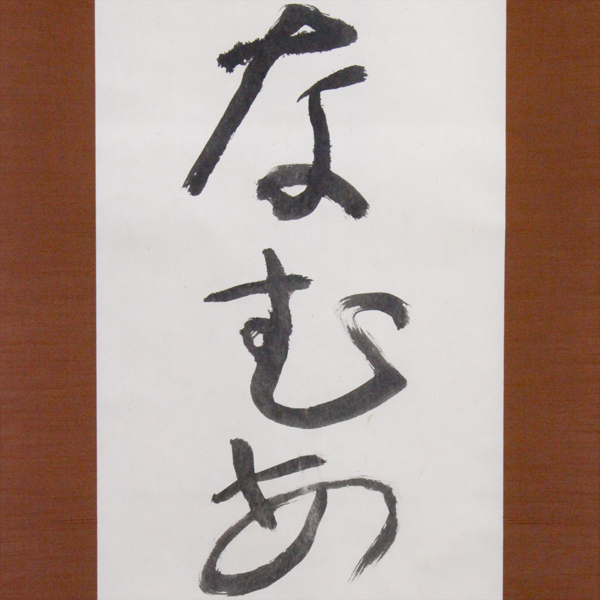 なむあ